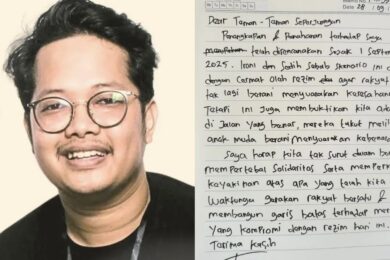 Date :
28 / 09 /
Dear Taman - Taman Seperjuangan
Penangkapan & Penahanan terhadap Saya
telah direncanakan Sejak 1 Septem
2025. Ironi dan Sedih Sebab Skenario ini
dengan Cermat oleh rezim agar rakyat
tak lagi berani menyuarakan keresahann
Tetapi ini Juga membuktikan kita ada
di Jalan yang benar, mereka takut melih
anak muda berani menyuarakan kebenar
Saya harap kita tak surut dalam
mempertebal solidaritas serta memper
keyakinan atas apa yang telah kita
Waktunya gerakan rakyat bersatu &
membangun garis batas terhadap
yang kompromi dengan rezim hari ini.
Terima Kasih